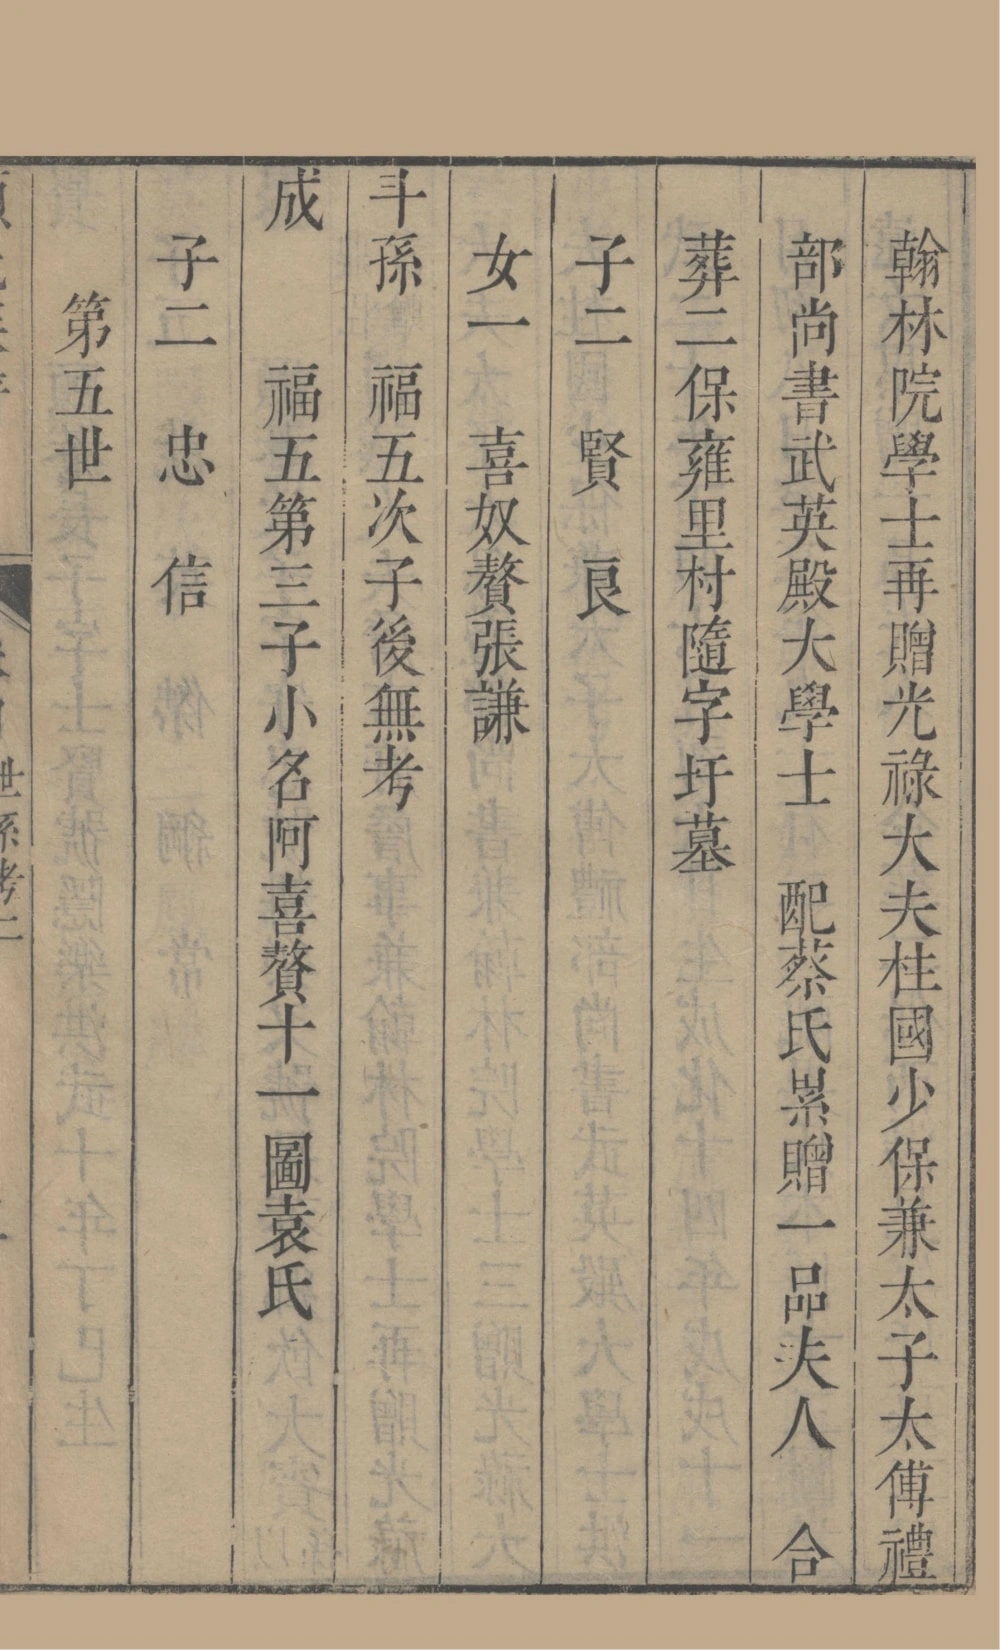 翰林院學士再贈光祿大夫柱國少保兼太子太傅禮
部尚書武英殿大學士　配蔡氏累贈一品夫人　合
葬二保雍里村隨字圩墓
子二　賢　良
女一　喜奴贅張謙
斗孫　福五次子後無考
成　　福五第三子小名阿喜贅十一圖袁氏
子二　忠　信
第五世
世系考二